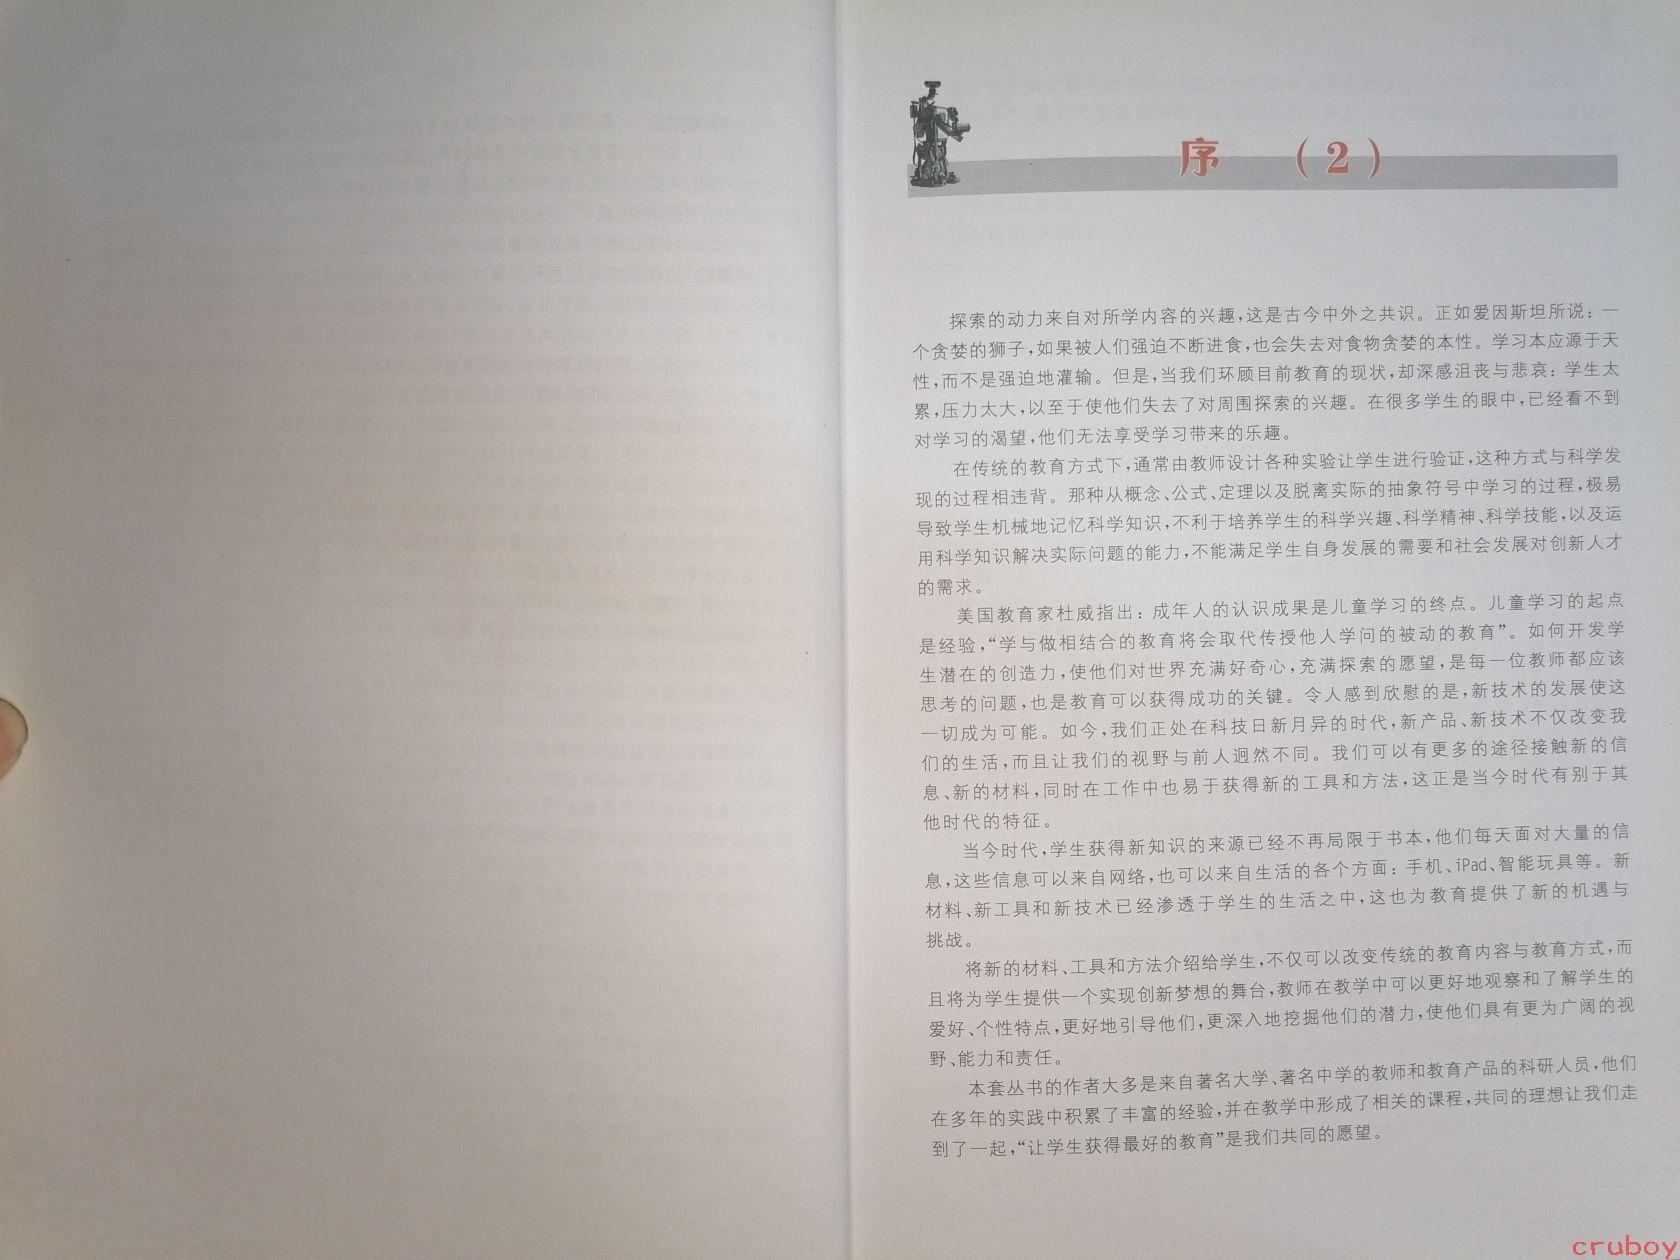 序 （2）
探索的动力来自对所学内容的兴趣，这是古今中外之共识。正如爱因斯坦所说：一
个贪婪的狮子，如果被人们强迫不断进食，也会失去对食物贪婪的本性。学习本应源于天
性，而不是强迫地灌输。但是，当我们环顾目前教育的现状，却深感沮丧与悲哀：学生太
累，压力太大，以至于使他们失去了对周围探索的兴趣。在很多学生的眼中，已经看不到
对学习的渴望，他们无法享受学习带来的乐趣。
在传统的教育方式下，通常由教师设计各种实验让学生进行验证，这种方式与科学发
现的过程相违背。那种从概念、公式、定理以及脱离实际的抽象符号中学习的过程，极易
导致学生机械地记忆科学知识，不利于培养学生的科学兴趣、科学精神、科学技能，以及运
用科学知识解决实际问题的能力，不能满足学生自身发展的需要和社会发展对创新人才
的需求。
美国教育家杜威指出：成年人的认识成果是儿童学习的终点。儿童学习的起点
是经验，“学与做相结合的教育将会取代传授他人学问的被动的教育”。如何开发学
生潜在的创造力，使他们对世界充满好奇心，充满探索的愿望，是每一位教师都应该
思考的问题，也是教育可以获得成功的关键。令人感到欣慰的是，新技术的发展使这
一切成为可能。如今，我们正处在科技日新月异的时代，新产品、新技术不仅改变我
们的生活，而且让我们的视野与前人迥然不同。我们可以有更多的途径接触新的信
息、新的材料，同时在工作中也易于获得新的工具和方法，这正是当今时代有别于其
他时代的特征。
当今时代，学生获得新知识的来源已经不再局限于书本，他们每天面对大量的信
息，这些信息可以来自网络，也可以来自生活的各个方面：手机、iPad、智能玩具等。新
材料、新工具和新技术已经渗透于学生的生活之中，这也为教育提供了新的机遇与
挑战。
将新的材料、工具和方法介绍给学生，不仅可以改变传统的教育内容与教育方式，而
且将为学生提供一个实现创新梦想的舞台，教师在教学中可以更好地观察和了解学生的
爱好、个性特点，更好地引导他们，更深入地挖掘他们的潜力，使他们具有更为广阔的视
野、能力和责任。
本套丛书的作者大多是来自著名大学、著名中学的教师和教育产品的科研人员，他们
在多年的实践中积累了丰富的经验，并在教学中形成了相关的课程，共同的理想让我们走
到了一起，“让学生获得最好的教育”是我们共同的愿望。
cruboy